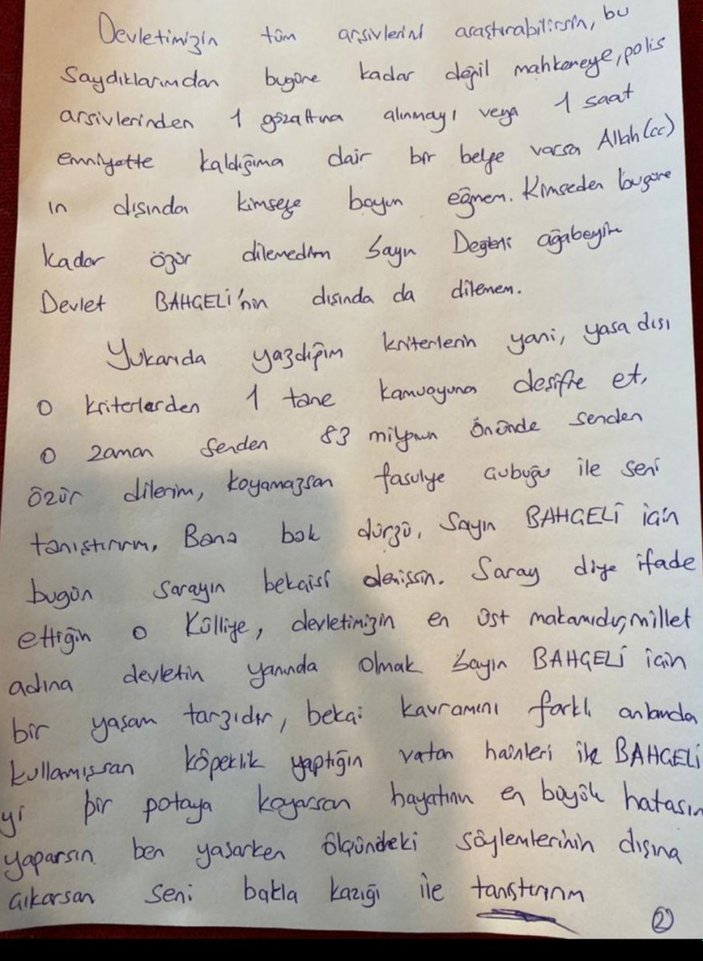 Devletimizin tüm arşivlerini araştırabilirsin, bu
Saydıklarımdan bugüne kadar değil mahkemeye, polis
arşivlerinden 1 gözaltına alınmayı veya 1 saat
emniyette kaldığıma dair bir belge varsa Allah (cc)
ın dışında kimseye boyun eğmem. Kimseden bugüne
kadar özür dilemedim Sayın Değerli ağabeyim
Devlet BAHÇELİ'nin dışında da dilemem.
Yukarıda yazdığım kriterlerin yani, yasa dışı
o kriterlerden 1 tane kamuoyuna deşifre et,
o zaman senden 83 milyonun önünde senden
özür dilerim, koyamazsan fasulye çubuğu ile seni
tanıştırırım, Bana bak dürzü, Sayın BAHÇELİ için
bugün sarayın bekaisi demişsin. Saray diye ifade
ettiğin o Külliye, devletimizin en üst makamıdır, millet
adına devletin yanında olmak Sayın BAHÇELİ için
bir yaşam tarzıdır, bekai kavramını farklı anlamda
kullamışsan köpeklik yaptığın vatan hainleri ile BAHÇELİ
yi bir potaya koyarsan hayatının en büyük hatasın
yaparsın ben yaşarken ölçündeki söylemlerinin dışına
çıkarsan seni bakla kazığı ile tanıştırırım
2